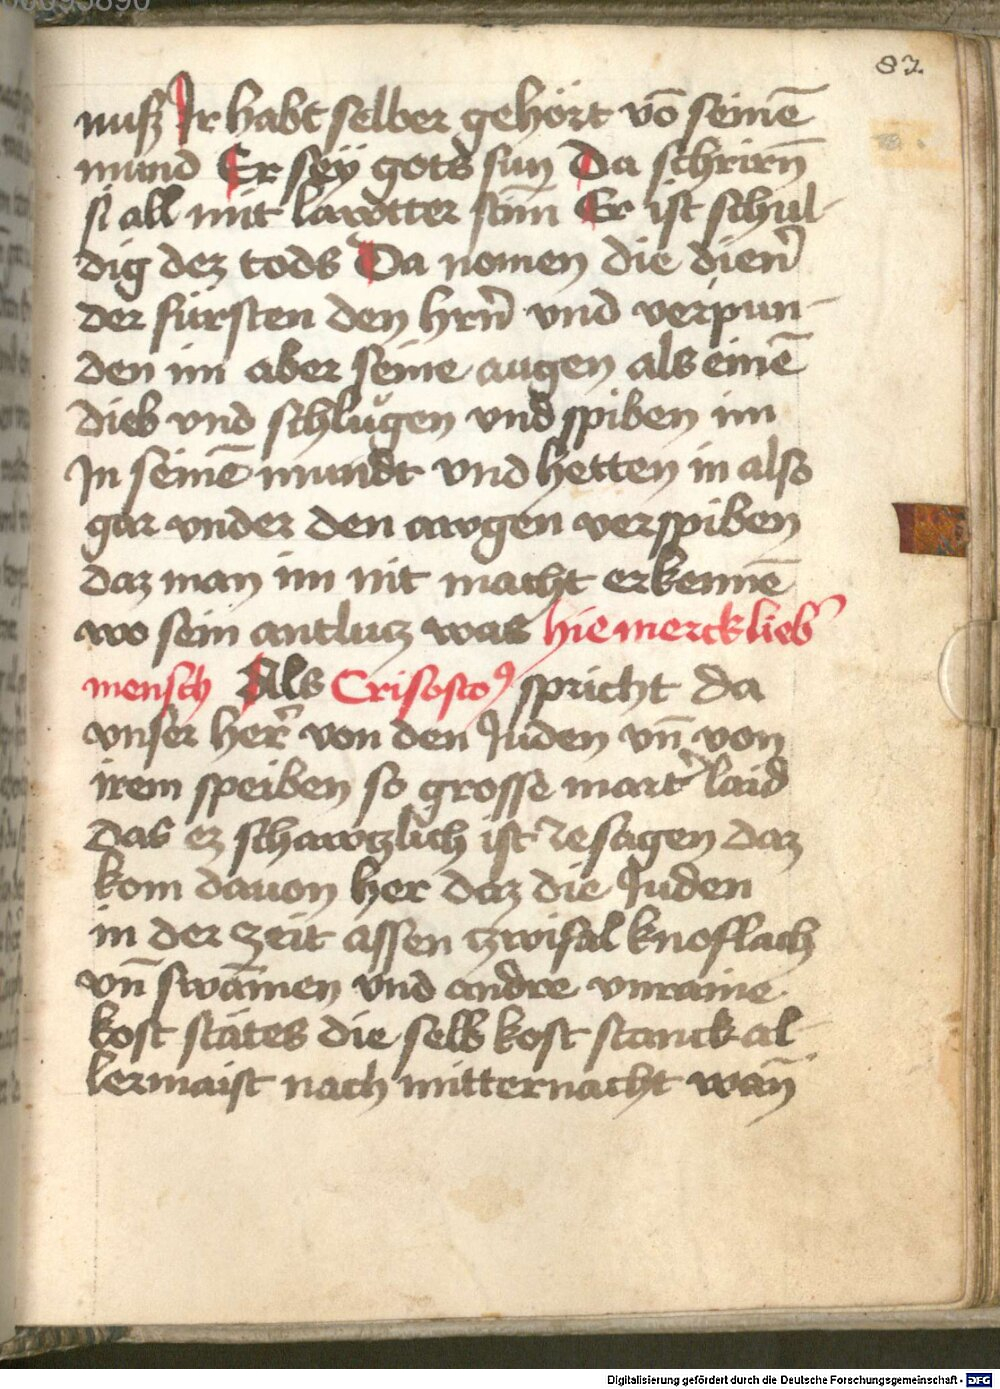 82
nuß Ir habt selber gehört vō seinē
mund Er sey gots sun Da schrirn̄
si all mit lawtter stim̄ Er ist schul-
dig dez tods Da nomen die dien̄
der fürsten den hrn̄ vnd verpun-
den im aber seine augen als einē
dieb vnd schlůgen vnd spiben im
In seinē mundt vnd hetten in also
gar vnder den awgen verspiben
daz man im nit macht erkennē
wo sein antlucz was hie merck lieb̄
mensch Als Crisosto9 spricht da
vnser her̄ von den Juden vn̄ von
irem speiben so grosse mart̄ laid
das ez schawczlich ist ze sagen daz
kom dauon her daz die Juden
in der zeit assen zwifal knoflach
vn̄ swām̄en vnd andre vnraine
kost stätes die selb kost stanck al-
lermaist nach mitternacht wan̄
Digitalisierung gefördert durch die Deutsche Forschungsgemeinschaft - DFG